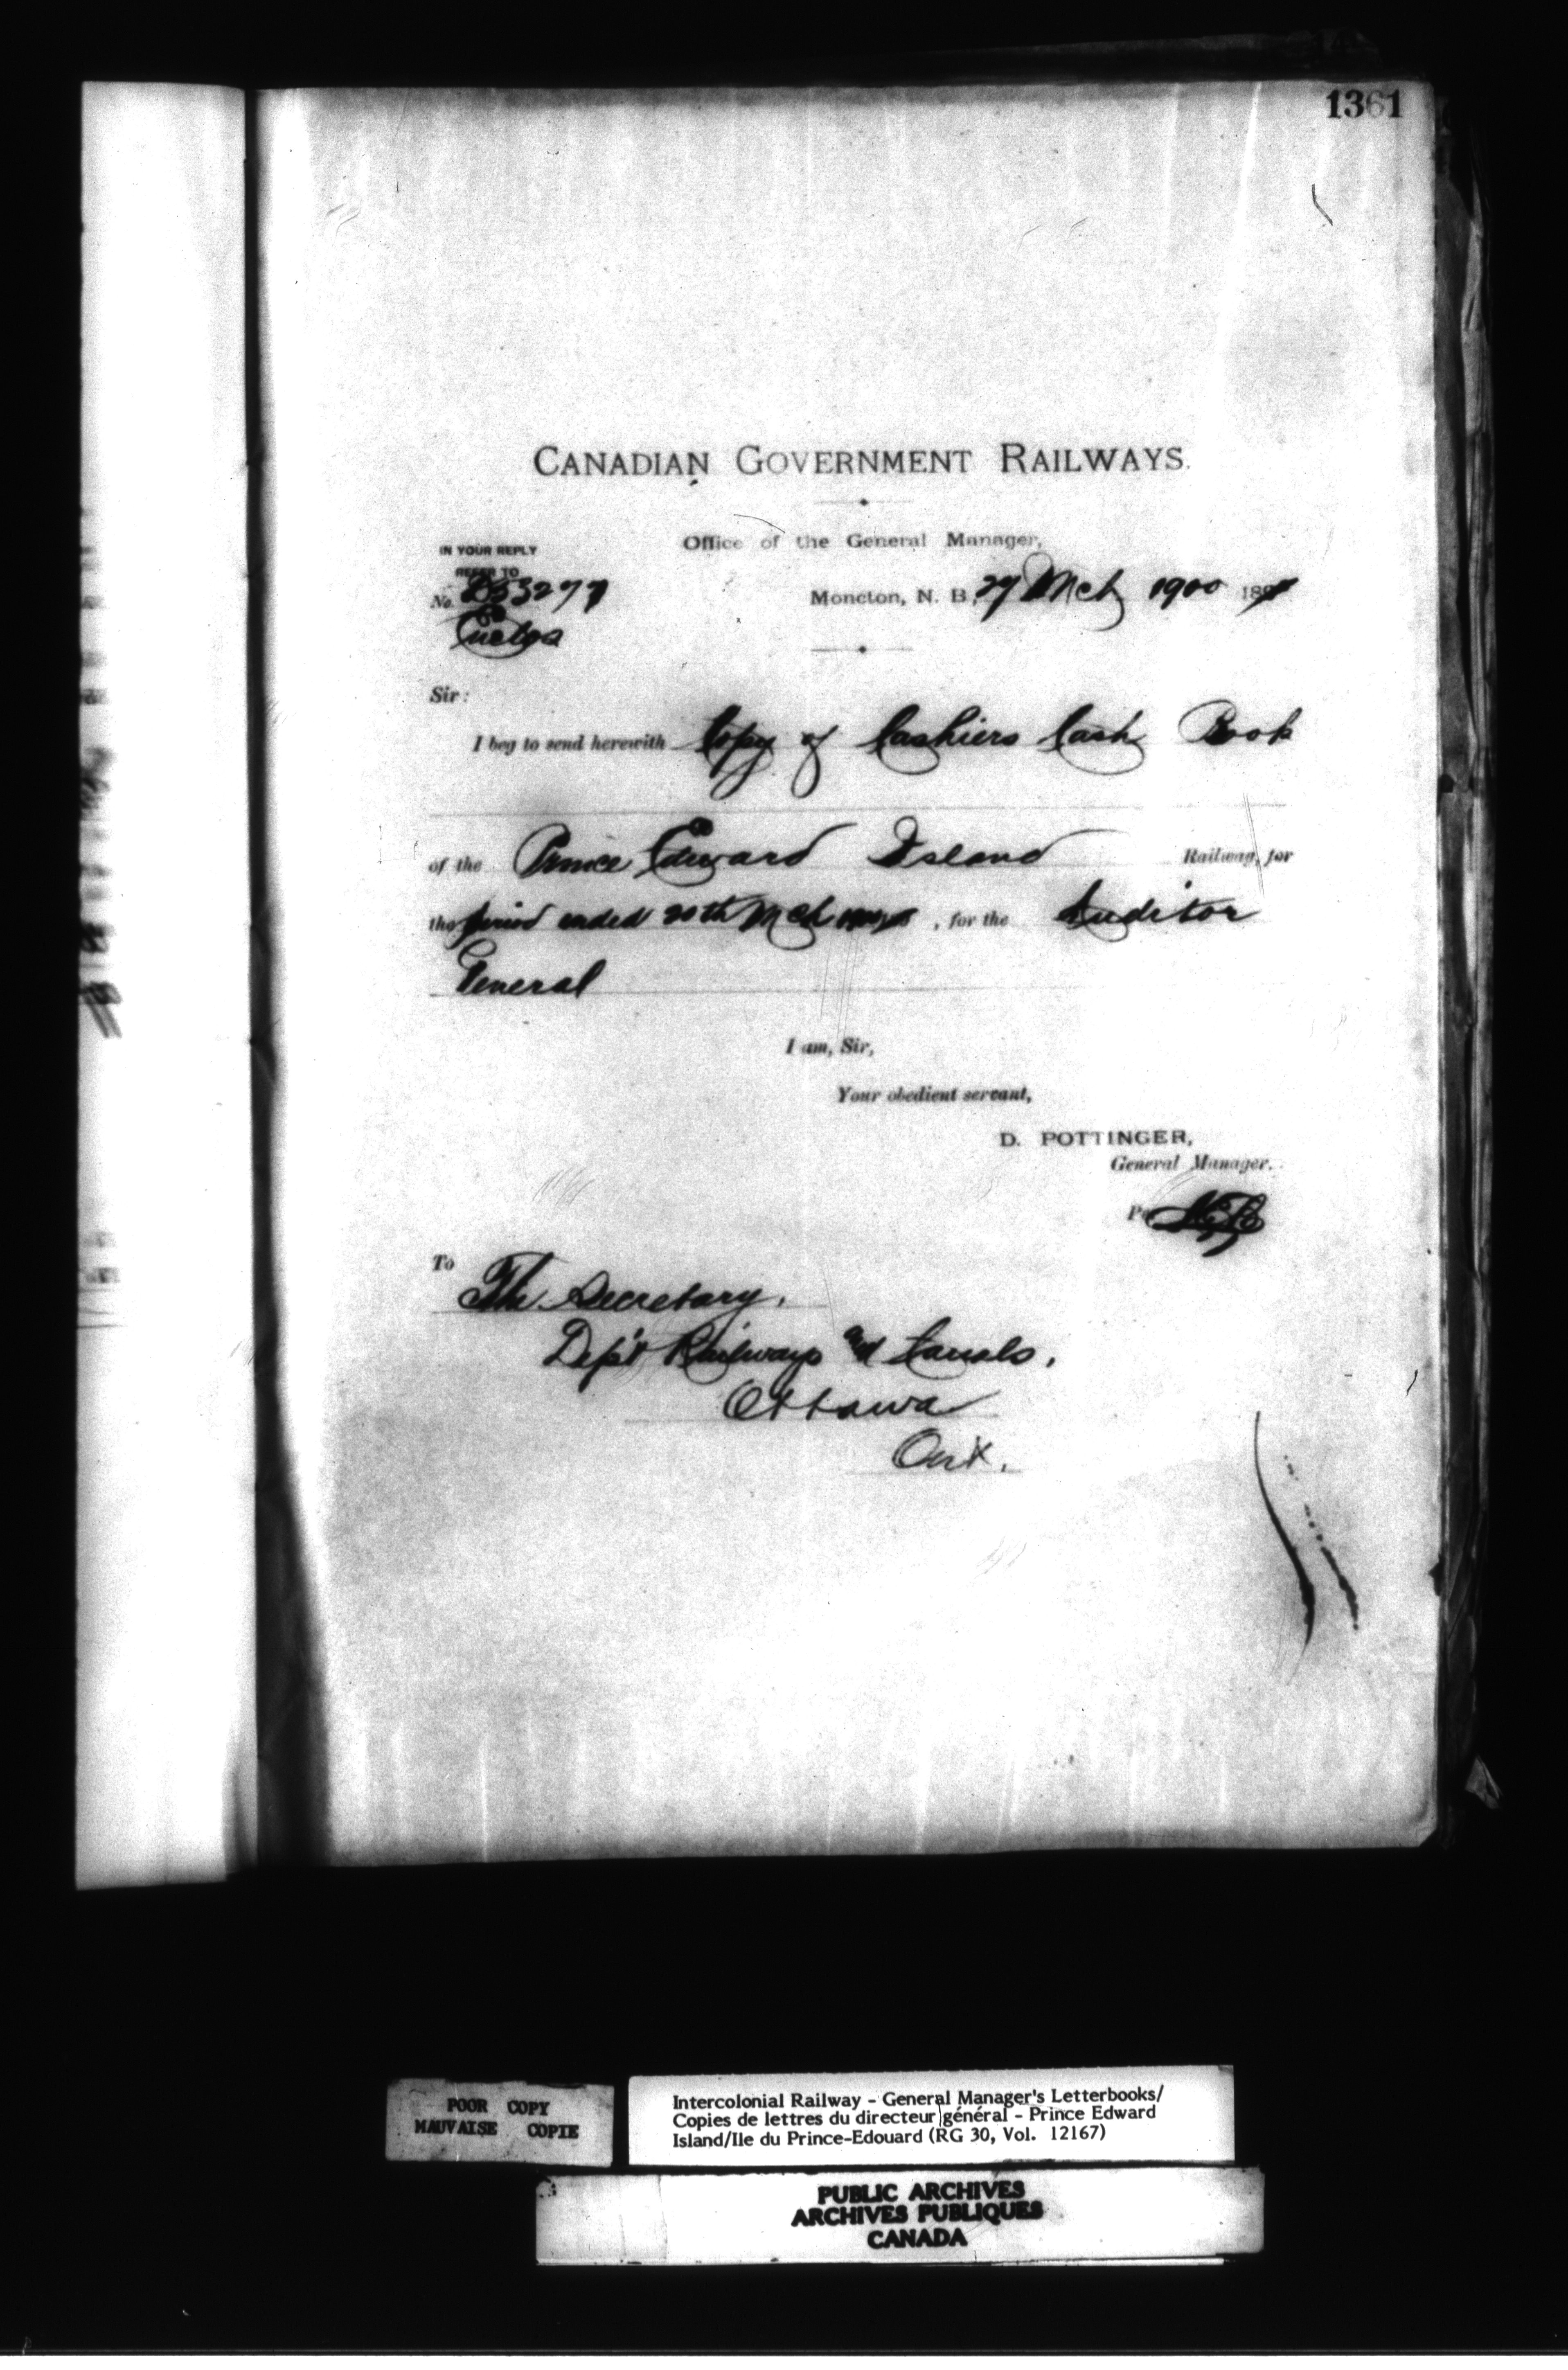 1361
CANADIAN GOVERNMENT RAILWAYS.
Office of the General Manager,
IN YOUR REPLY
REFER TO
No. 53277
Moncton, N. B., 27 Mch 1900 189
Enclos
Sir:
I beg to send herewith Copy of Cashiers Cash Book
of the Prince Edward Island Railway, for
the period ended 20th Mch 1900, for the Auditor
General
I am, Sir,
Your obedient servant,
D. POTTINGER,
General Manager.
Per
To
The Secretary,
Dep't Railways and Canals,
Ottawa
Ont.
POOR COPY
MAUVAISE COPIE
Intercolonial Railway - General Manager's Letterbooks/
Copies de lettres du directeur général - Prince Edward
Island/Ile du Prince-Edouard (RG 30, Vol. 12167)
PUBLIC ARCHIVES
ARCHIVES PUBLIQUES
CANADA